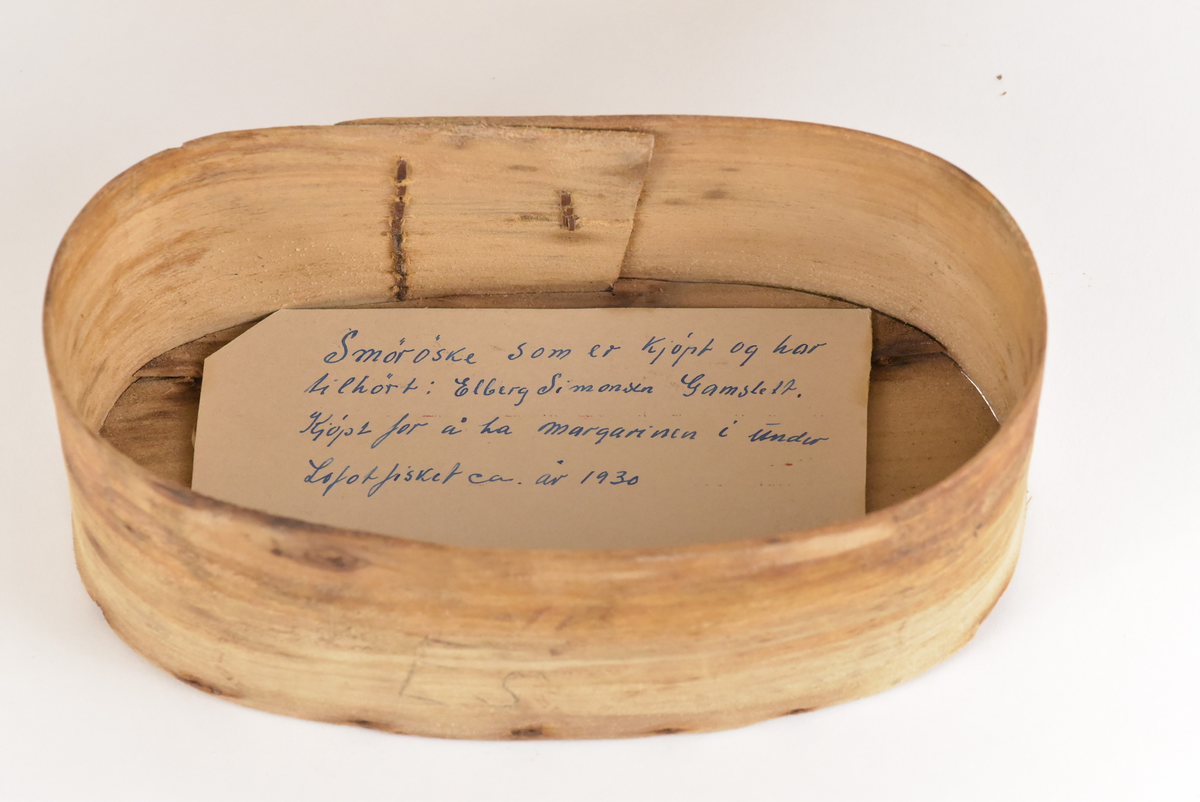 Smöröske som er kjópt og har
tilhört: Elberg Simonsen Gamslett.
Kjópt for å ha margarinen i under
Lofotfisket ca. år 1930
L S